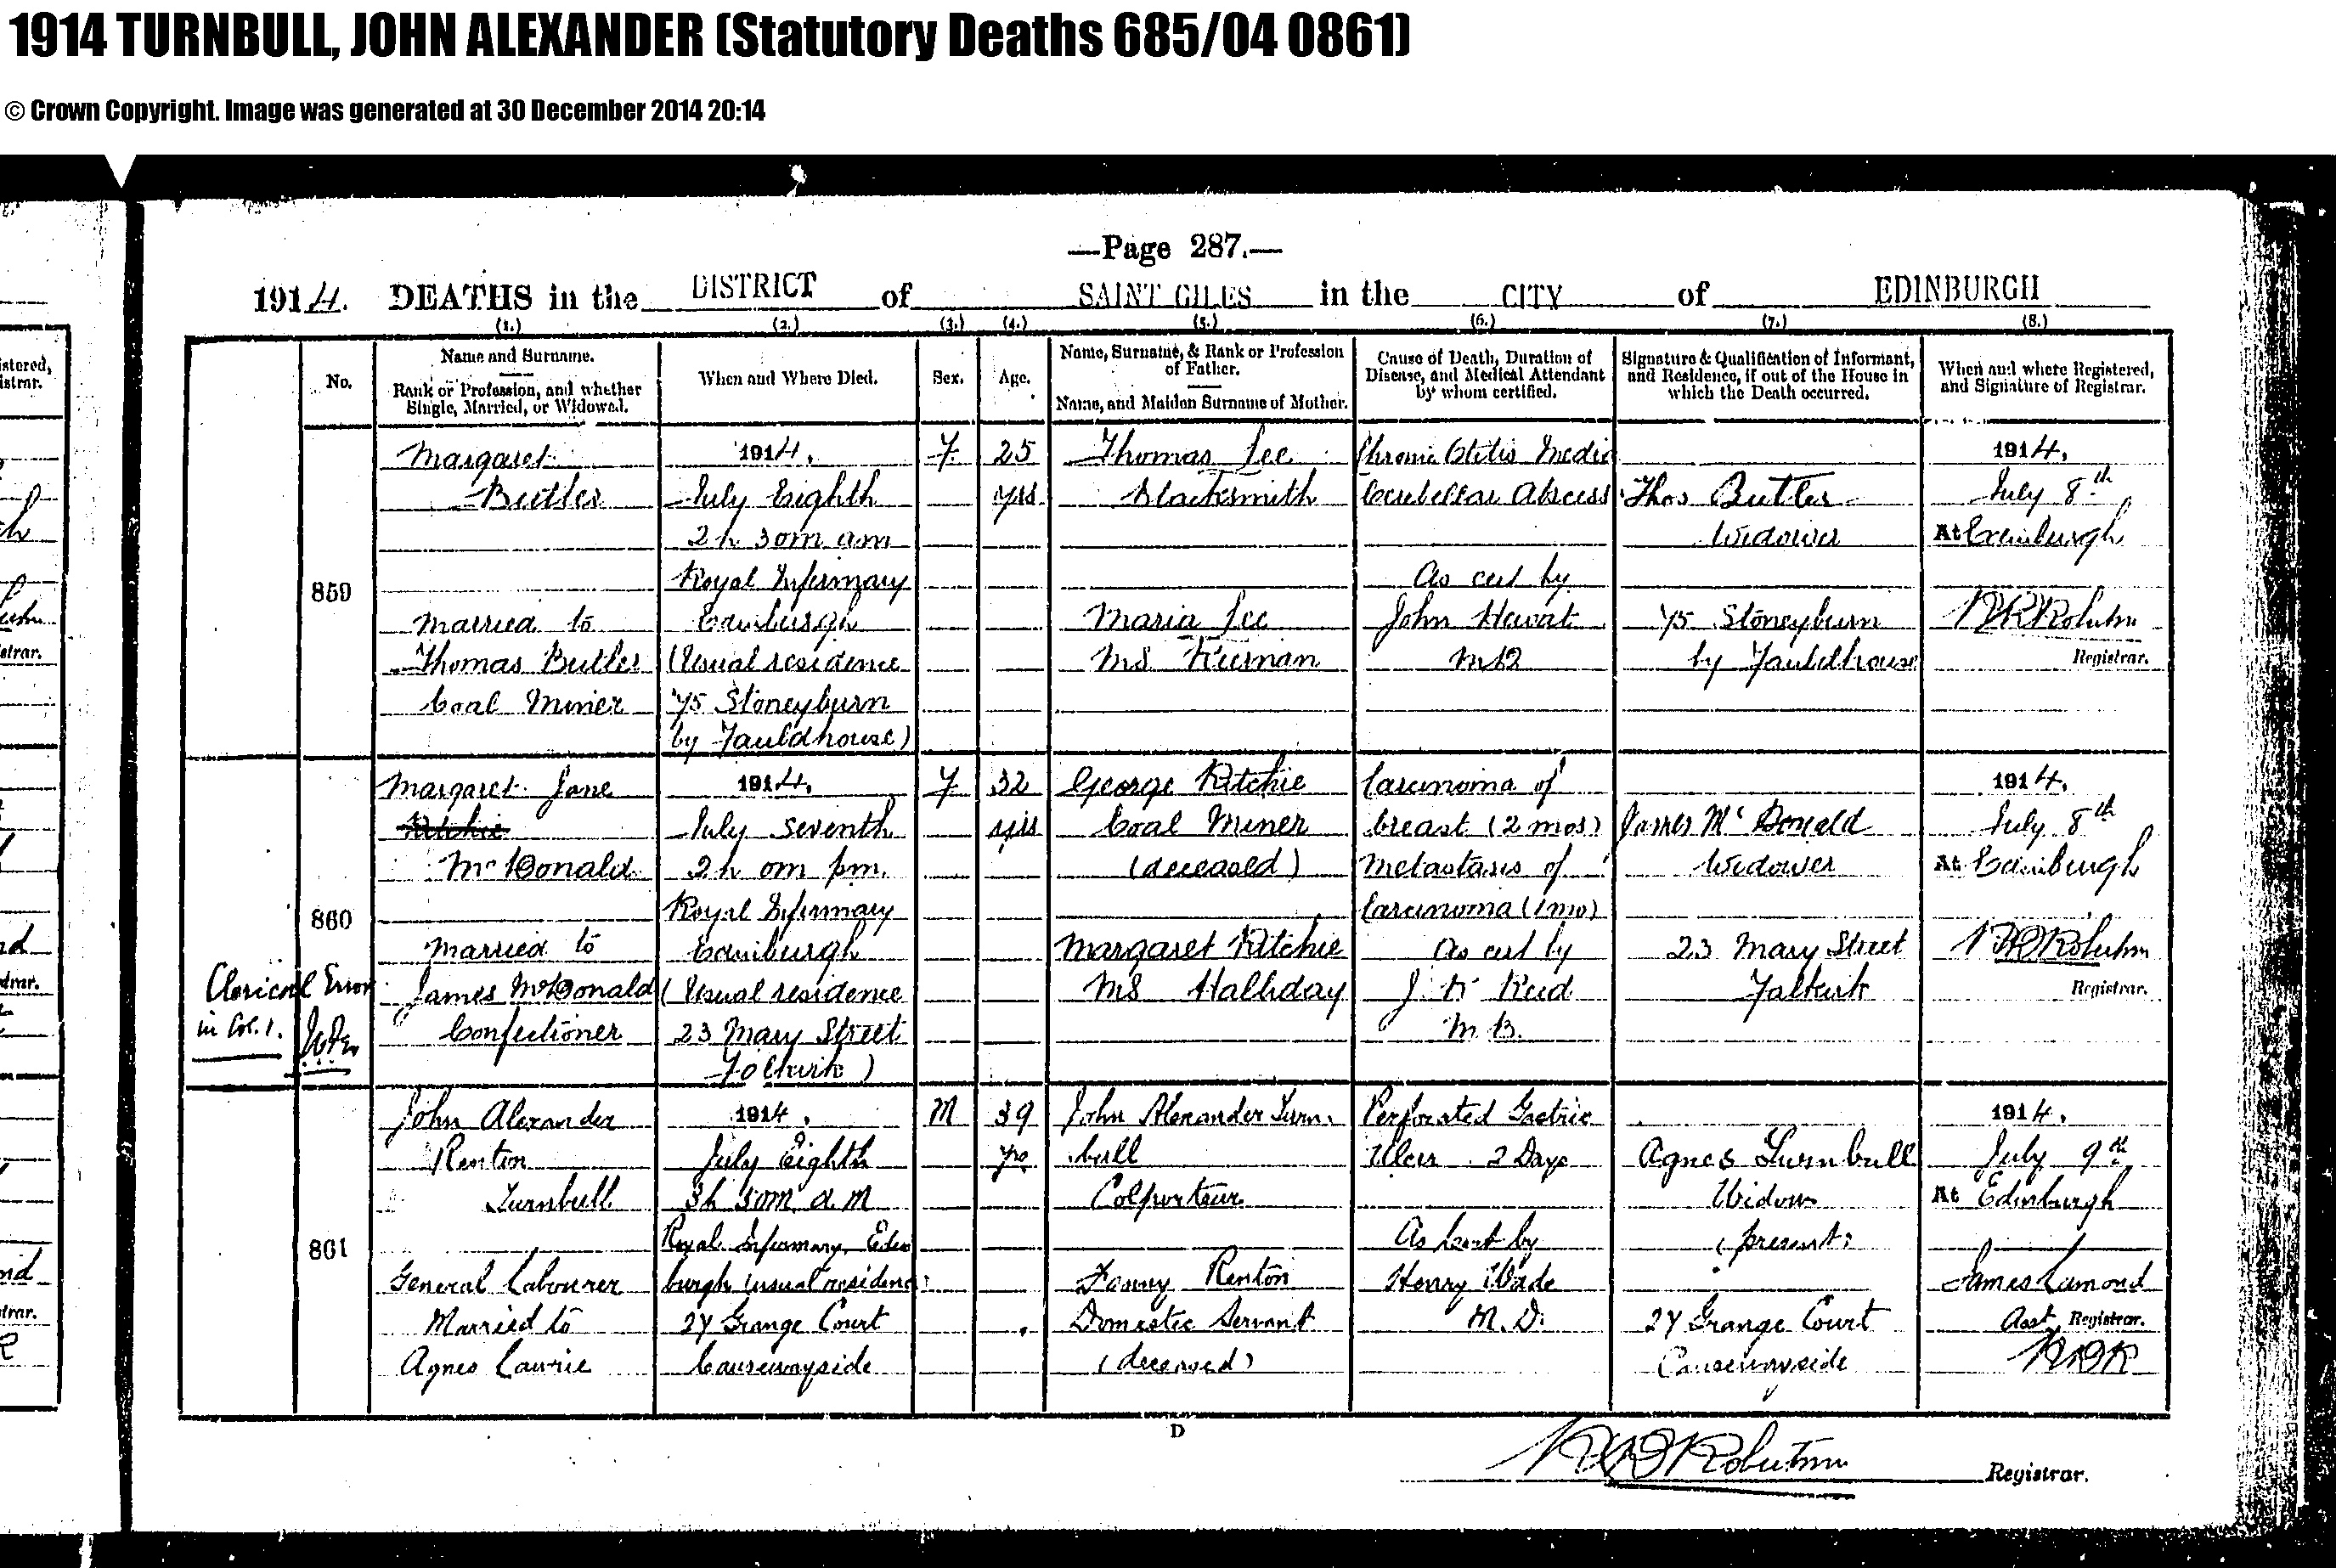 1914 TURNBULL, JOHN ALEXANDER (Statutory Deaths 685/04 0861)
© Crown Copyright. Image was generated at 30 December 2014 20:14
—Page 287.—
1914. DEATHS in the DISTRICT of SAINT GILES in the CITY of EDINBURGH
(1.) (2.) (3.) (4.) (5.) (6.) (7.) (8.)
No.
Name and Surname.
Rank or Profession, and whether
Single, Married, or Widowed.
When and Where Died.
Sex.
Age.
Name, Surname, & Rank or Profession
of Father.
Name, and Maiden Surname of Mother.
Cause of Death, Duration of
Disease, and Medical Attendant
by whom certified.
Signature & Qualification of Informant,
and Residence, if out of the House in
which the Death occurred.
When and where Registered,
and Signature of Registrar.
859
Margaret
Butler
Married to
Thomas Butler
Coal Miner
1914.
July Eighth
2 h 30m am
Royal Infirmary
Edinburgh
(Usual residence
75 Stoneyburn
by Fauldhouse)
F
25
yrs
Thomas Lee
Blacksmith
Maria Lee
MS Kiernan
Chronic Otitis Media
Cerebellar Abscess
As cert by
John Hewat
MB
Thos Butler
Widower
75 Stoneyburn
by Fauldhouse
1914.
July 8th
At Edinburgh
Registrar.
860
Clerical Error
in Col. 1.
Margaret Jane
Ritchie
McDonald
Married to
James McDonald
Confectioner
1914.
July Seventh
2 h 0m pm.
Royal Infirmary
Edinburgh
(Usual residence
23 Mary Street
Falkirk)
F
32
yrs
George Ritchie
Coal Miner
(deceased)
Margaret Ritchie
MS Halliday
Carcinoma of
breast (2 mos)
Metastasis of
Carcinoma (1 mo)
As cert by
J. K. Reid
M.B.
James McDonald
Widower
23 Mary Street
Falkirk
1914.
July 8th
At Edinburgh
Registrar.
861
John Alexander
Renton
Turnbull
General Labourer
Married to
Agnes Laurie
1914.
July Eighth
3h 50m a.m
Royal Infirmary, Edin
burgh (usual residence
27 Grange Court
Causewayside
M
39
yrs
John Alexander Turn-
bull
Colporteur
Fanny Renton
Domestic Servant
(deceased)
Perforated Gastric
Ulcer 2 Days
As Cert by
Henry Wade
M.D.
Agnes Turnbull
Widow
(present)
27 Grange Court
Causewayside
1914.
July 9th
At Edinburgh
James Lamond
Asst. Registrar.
D
Registrar.